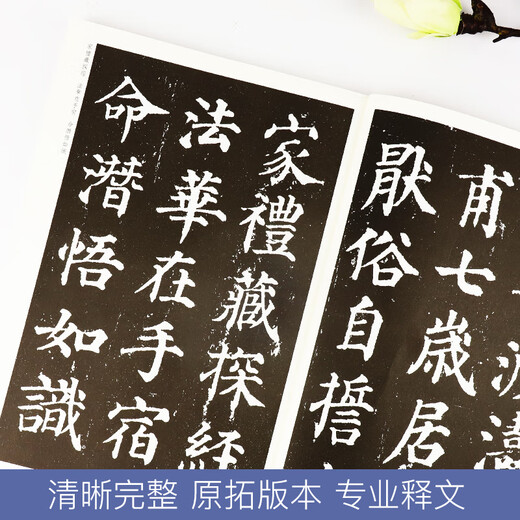 甫七歲居
厭俗自誓
家禮藏探經
法華在手宿
命潛悟如識
清晰完整 原拓版本 专业释文